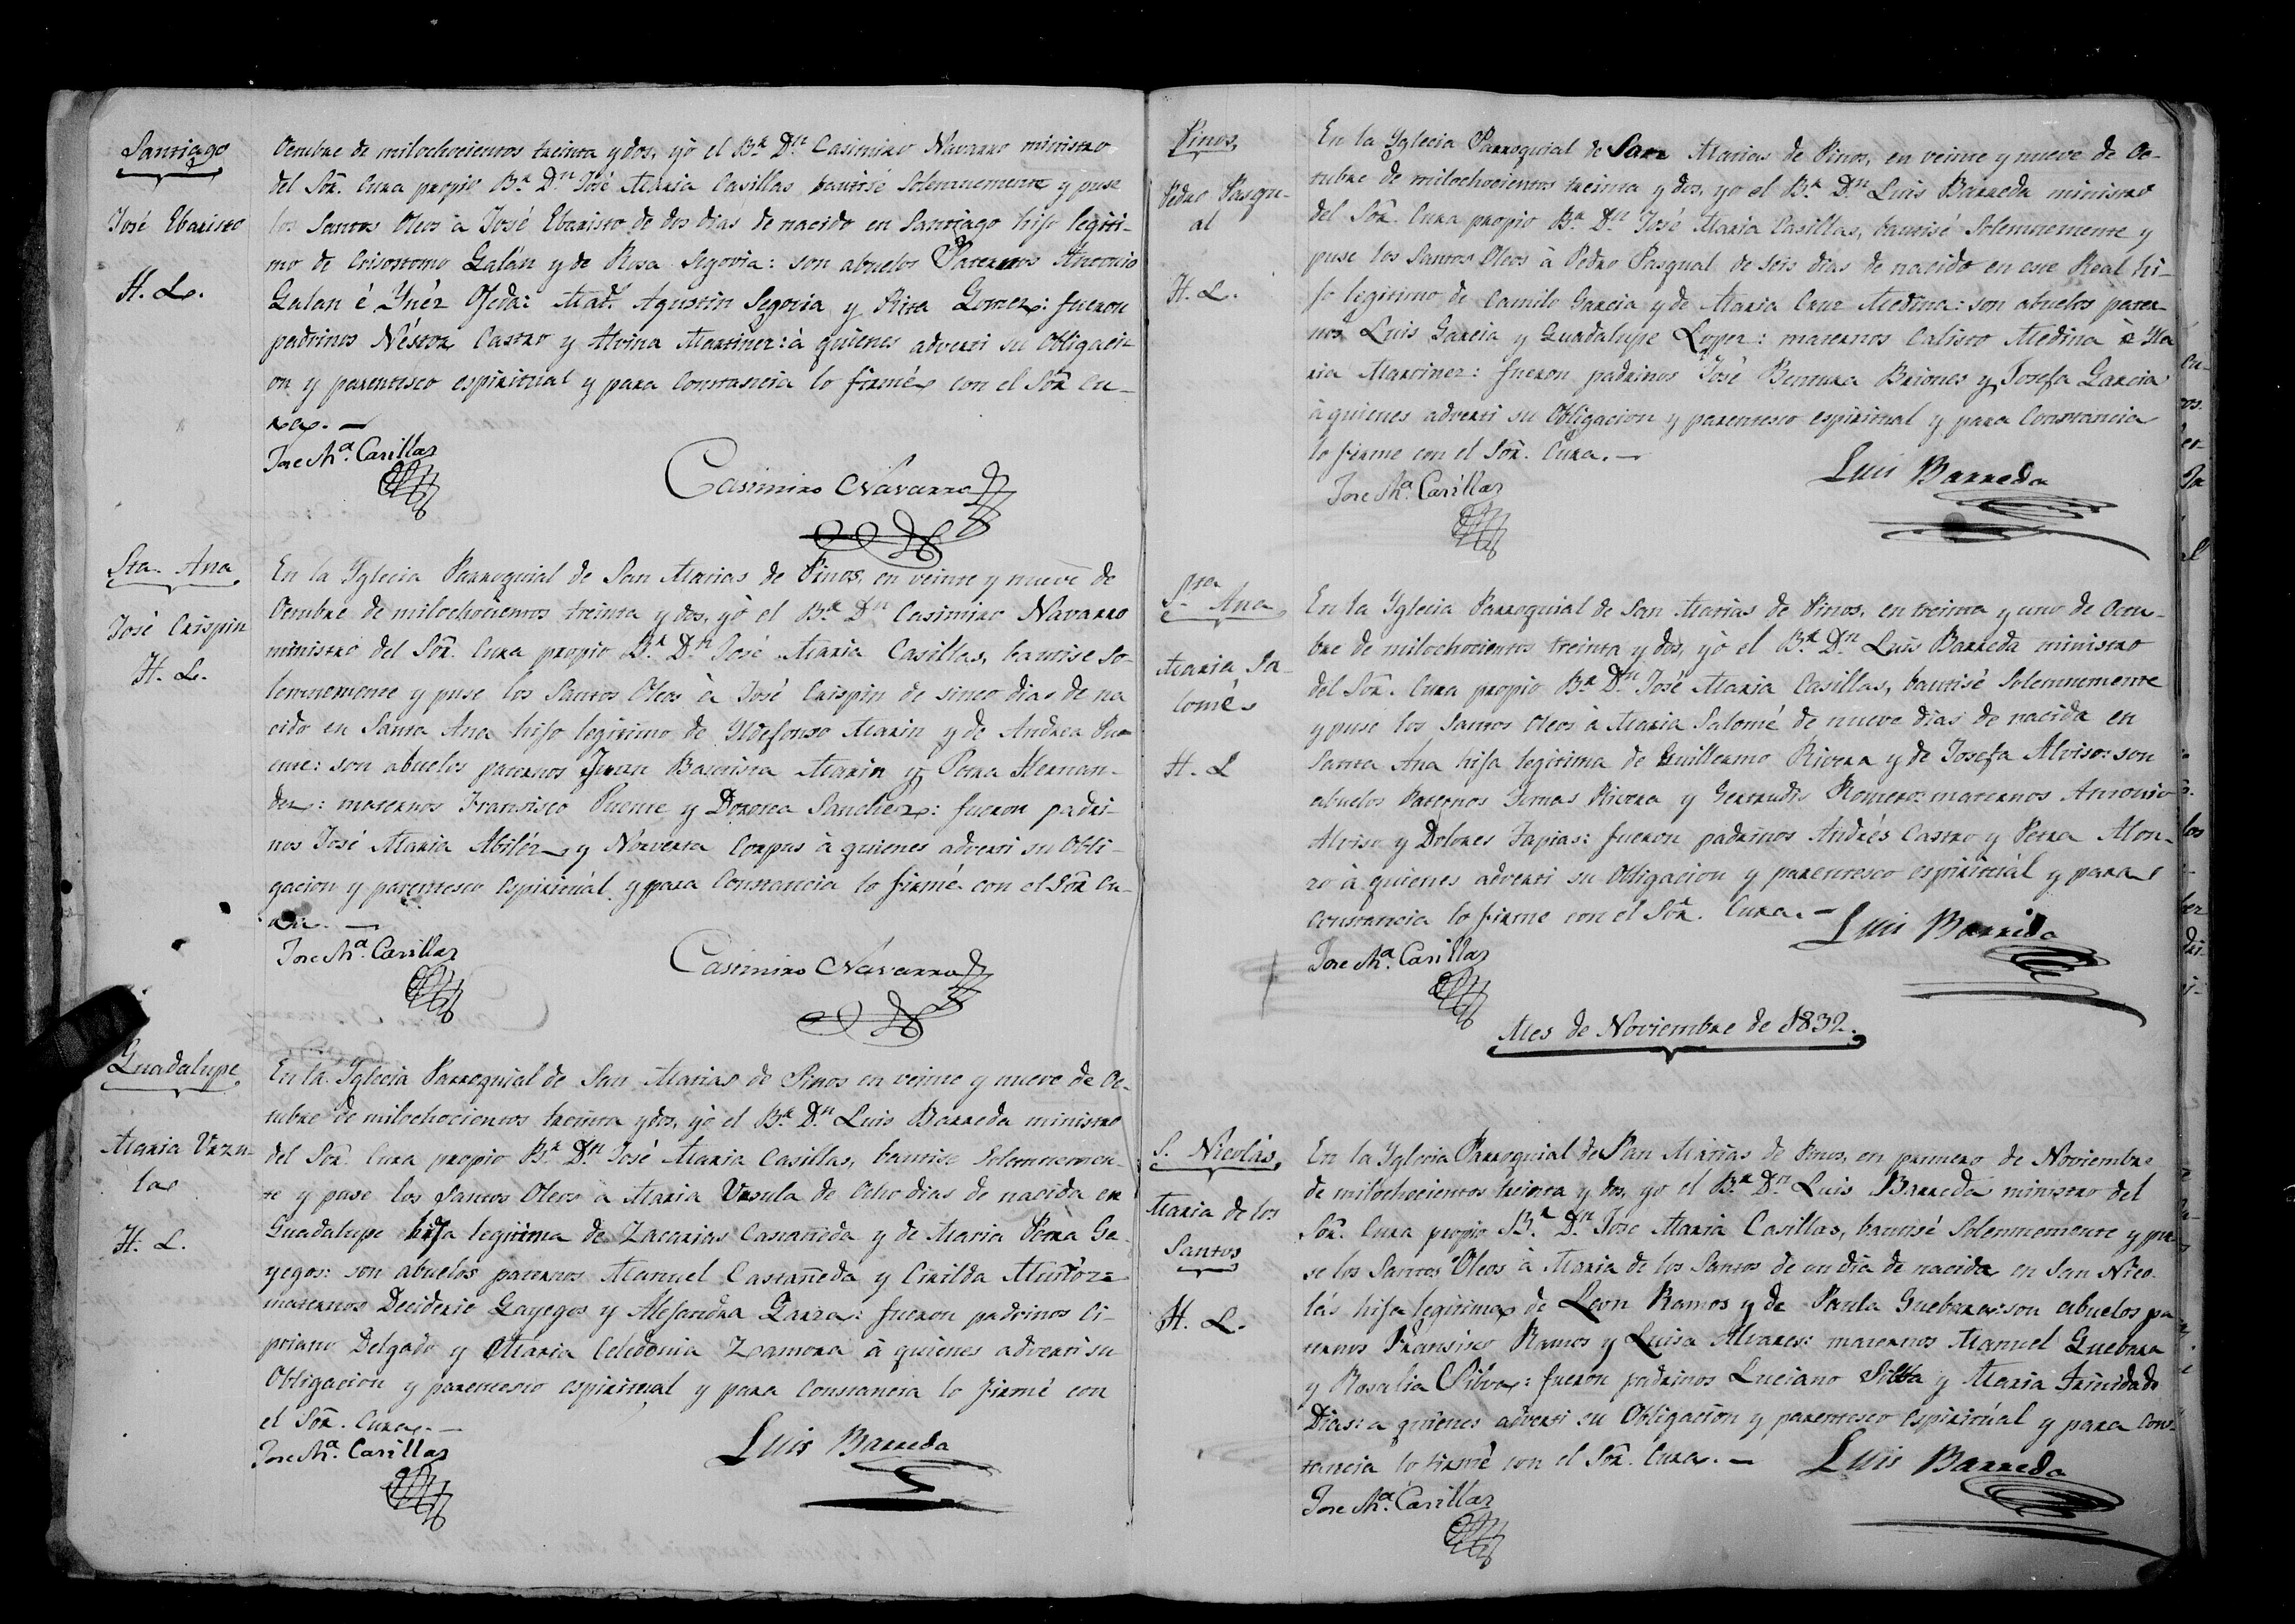 Santiago
José Ebaristo
H. L.
Octubre de milochocientos treinta y dos, yó el Br. Dn. Casimiro Navarro ministro
del Sōr. Cura propio Br. Dn. José Maria Casillas, bautisé Solemnemente y puse
los Santos Oleos à José Ebaristo de dos dias de nacido en Santiago hijo legiti-
mo de Crisostomo Galán y de Rosa Segovia: son abuelos Paternos Antonio
Galan é Ynéz Ojeda: Mats. Agustin Segovia y Rita Gomez: fueron
padrinos Néstor Castro y Alvina Martinez: à quienes adverti su Obligaci-
on y parentesco espiritual y para Constancia lo firmé con el Sōr. Cu-
ra. —
Jose Ma. Casillas
Casimiro Navarro
Sta. Ana
José Crispin
H. L.
En la Yglecia Parroquial de San Matias de Pinos, en veinte y nueve de
Octubre de milochocientos treinta y dos, yó el Br. Dn. Casimiro Navarro
ministro del Sōr. Cura propio Br. Dn. José Maria Casillas, bautise So-
lemnemente y puse los Santos Oleos à José Crispin de sinco dias de na
cido en Santa Ana hijo legitimo de Yldefonso Marin y de Andrea Pu
ente: son abuelos paternos Juan Bautista Marin y Petra Hernan-
dez: maternos Fransisco Puente y Dorotea Sanchez: fueron padri-
nos José Maria Abiléz y Norverta Corpus à quienes adverti su Obli-
gacion y parentesco Espiritual y para Constancia lo firmé con el Sōr. Cu-
ra. —
Jose Ma. Casillas
Casimiro Navarro
Guadalupe
Maria Urzu-
la
H. L.
En la Yglecia Parroquial de San Matias de Pinos en veinte y nueve de Oc-
tubre de milochocientos treinta y dos, yó el Br. Dn. Luis Barreda ministro
del Sōr. Cura propio Br. Dn. José Maria Casillas, bautise Solemnemen-
te y puse los Santos Oleos à Maria Ursula de Ocho dias de nacida en
Guadalupe hija legitima de Zacarias Castañeda y de Maria Petra Ga-
yegos: son abuelos paternos Manuel Castañeda y Cirilda Muñoz=
maternos Deciderio Gayegos y Alejandra Garza: fueron padrinos Ci-
priano Delgado y Maria Celedonia Zamora à quienes adverti su
Obligacion y parentesco espiritual y para Constancia lo firmé con
el Sōr. Cura. —
Jose Ma. Casillas
Luis Barreda
Pinos
Pedro Pasqu-
al
H. L.
En la Yglecia Parroquial de San Matias de Pinos, en veinte y nueve de Oc-
tubre de milochocientos treinta y dos, yo el Br. Dn. Luis Barreda ministro
del Sōr. Cura propio Br. Dn. José Maria Casillas, bautisé Solemnemente y
puse los Santos Oleos à Pedro Pasqual de seis dias de nacido en este Real hi-
jo legitimo de Camilo Garcia y de Maria Cruz Medina: son abuelos pater-
nos Luis Garcia y Guadalupe Lopez: maternos Calisto Medina è Ma
ria Martinez: fueron padrinos José Bentura Briones y Josefa Garcia
à quienes adverti su Obligacion y parentesco espiritual y para Constancia
lo firme con el Sōr. Cura. —
Jose Ma. Casillas
Luis Barreda
Sta. Ana
Maria Sa-
lomé
H. L
En la Yglecia Parroquial de San Matias de Pinos, en treinta y uno de Octu-
bre de milochocientos treinta y dos, yó el Br. Dn. Luis Barreda ministro
del Sōr. Cura propio Br. Dn. José Maria Casillas, bautisé Solemnemente
y puse los Santos Oleos à Maria Salomé de nueve dias de nacida en
Santa Ana hija legitima de Guillermo Rivera y de Josefa Alviso: son
abuelos Paternos Rivera y Gertrudis Romero: maternos Antonio
Alviso y Dolores Tapias: fueron padrinos Andrés Castro y Petra Alon-
zo à quienes adverti su Obligacion y parentesco espiritual y para
Constancia lo firme con el Sōr. Cura. —
Jose Ma. Casillas
Luis Barreda
Mes de Noviembre de 1832.
S. Nicolás
Maria de los
Santos
H. L.
En la Yglecia Parroquial de San Matias de Pinos, en primero de Noviembre
de milochocientos treinta y dos, yo el Br. Dn. Luis Barreda ministro del
Sōr. Cura propio Br. Dn. Jose Maria Casillas, bautisé Solemnemente y pu-
se los Santos Oleos à Maria de los Santos de un dia de nacida en San Nico-
lás hija legitima de Leon Ramos y de Paula Guebara: son abuelos pa
ternos Fransisco Ramos y Luisa Alvares: maternos Manuel Guebara
y Rosalia Silva: fueron padrinos Luciano Silba y Maria Trinidad
Dias: a quienes adverti su Obligacion y parentesco Espiritual y para Cons-
tancia lo firmé con el Sōr. Cura. —
Jose Ma. Casillas
Luis Barreda